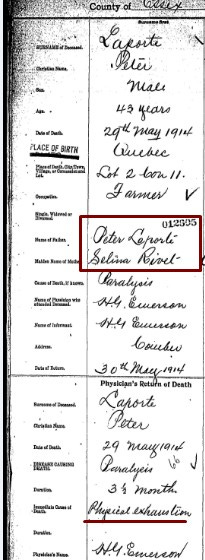 County of Essex
Surname first.
SURNAME of Deceased. Laporte
Christian Name. Peter
Sex. Male
Age. 43 years
Date of Death. 29th May 1914
PLACE OF BIRTH Quebec
Place of Death, City, Town, Village, or Concession and Lot. Lot 2 Con 11.
Occupation. Farmer
Single, Widowed or Divorced.
012595
Name of Father. Peter Laporte
Maiden Name of Mother Selina Rivet
Cause of Death, if known. Paralysis
Name of Physician who attended Deceased. H.G. Emerson
Name of Informant. H.G Emerson
Address. Comber
Date of Return. 30th May 1914
Physician's Return of Death
Surname of Deceased. Laporte
Christian Name. Peter
Date of Death. 29 May 1914
DISEASE CAUSING DEATH. Paralysis 66
Duration. 3½ month
Immediate Cause of Death. Physical exhaustion
Duration.
Physician's Name H.G. Emerson